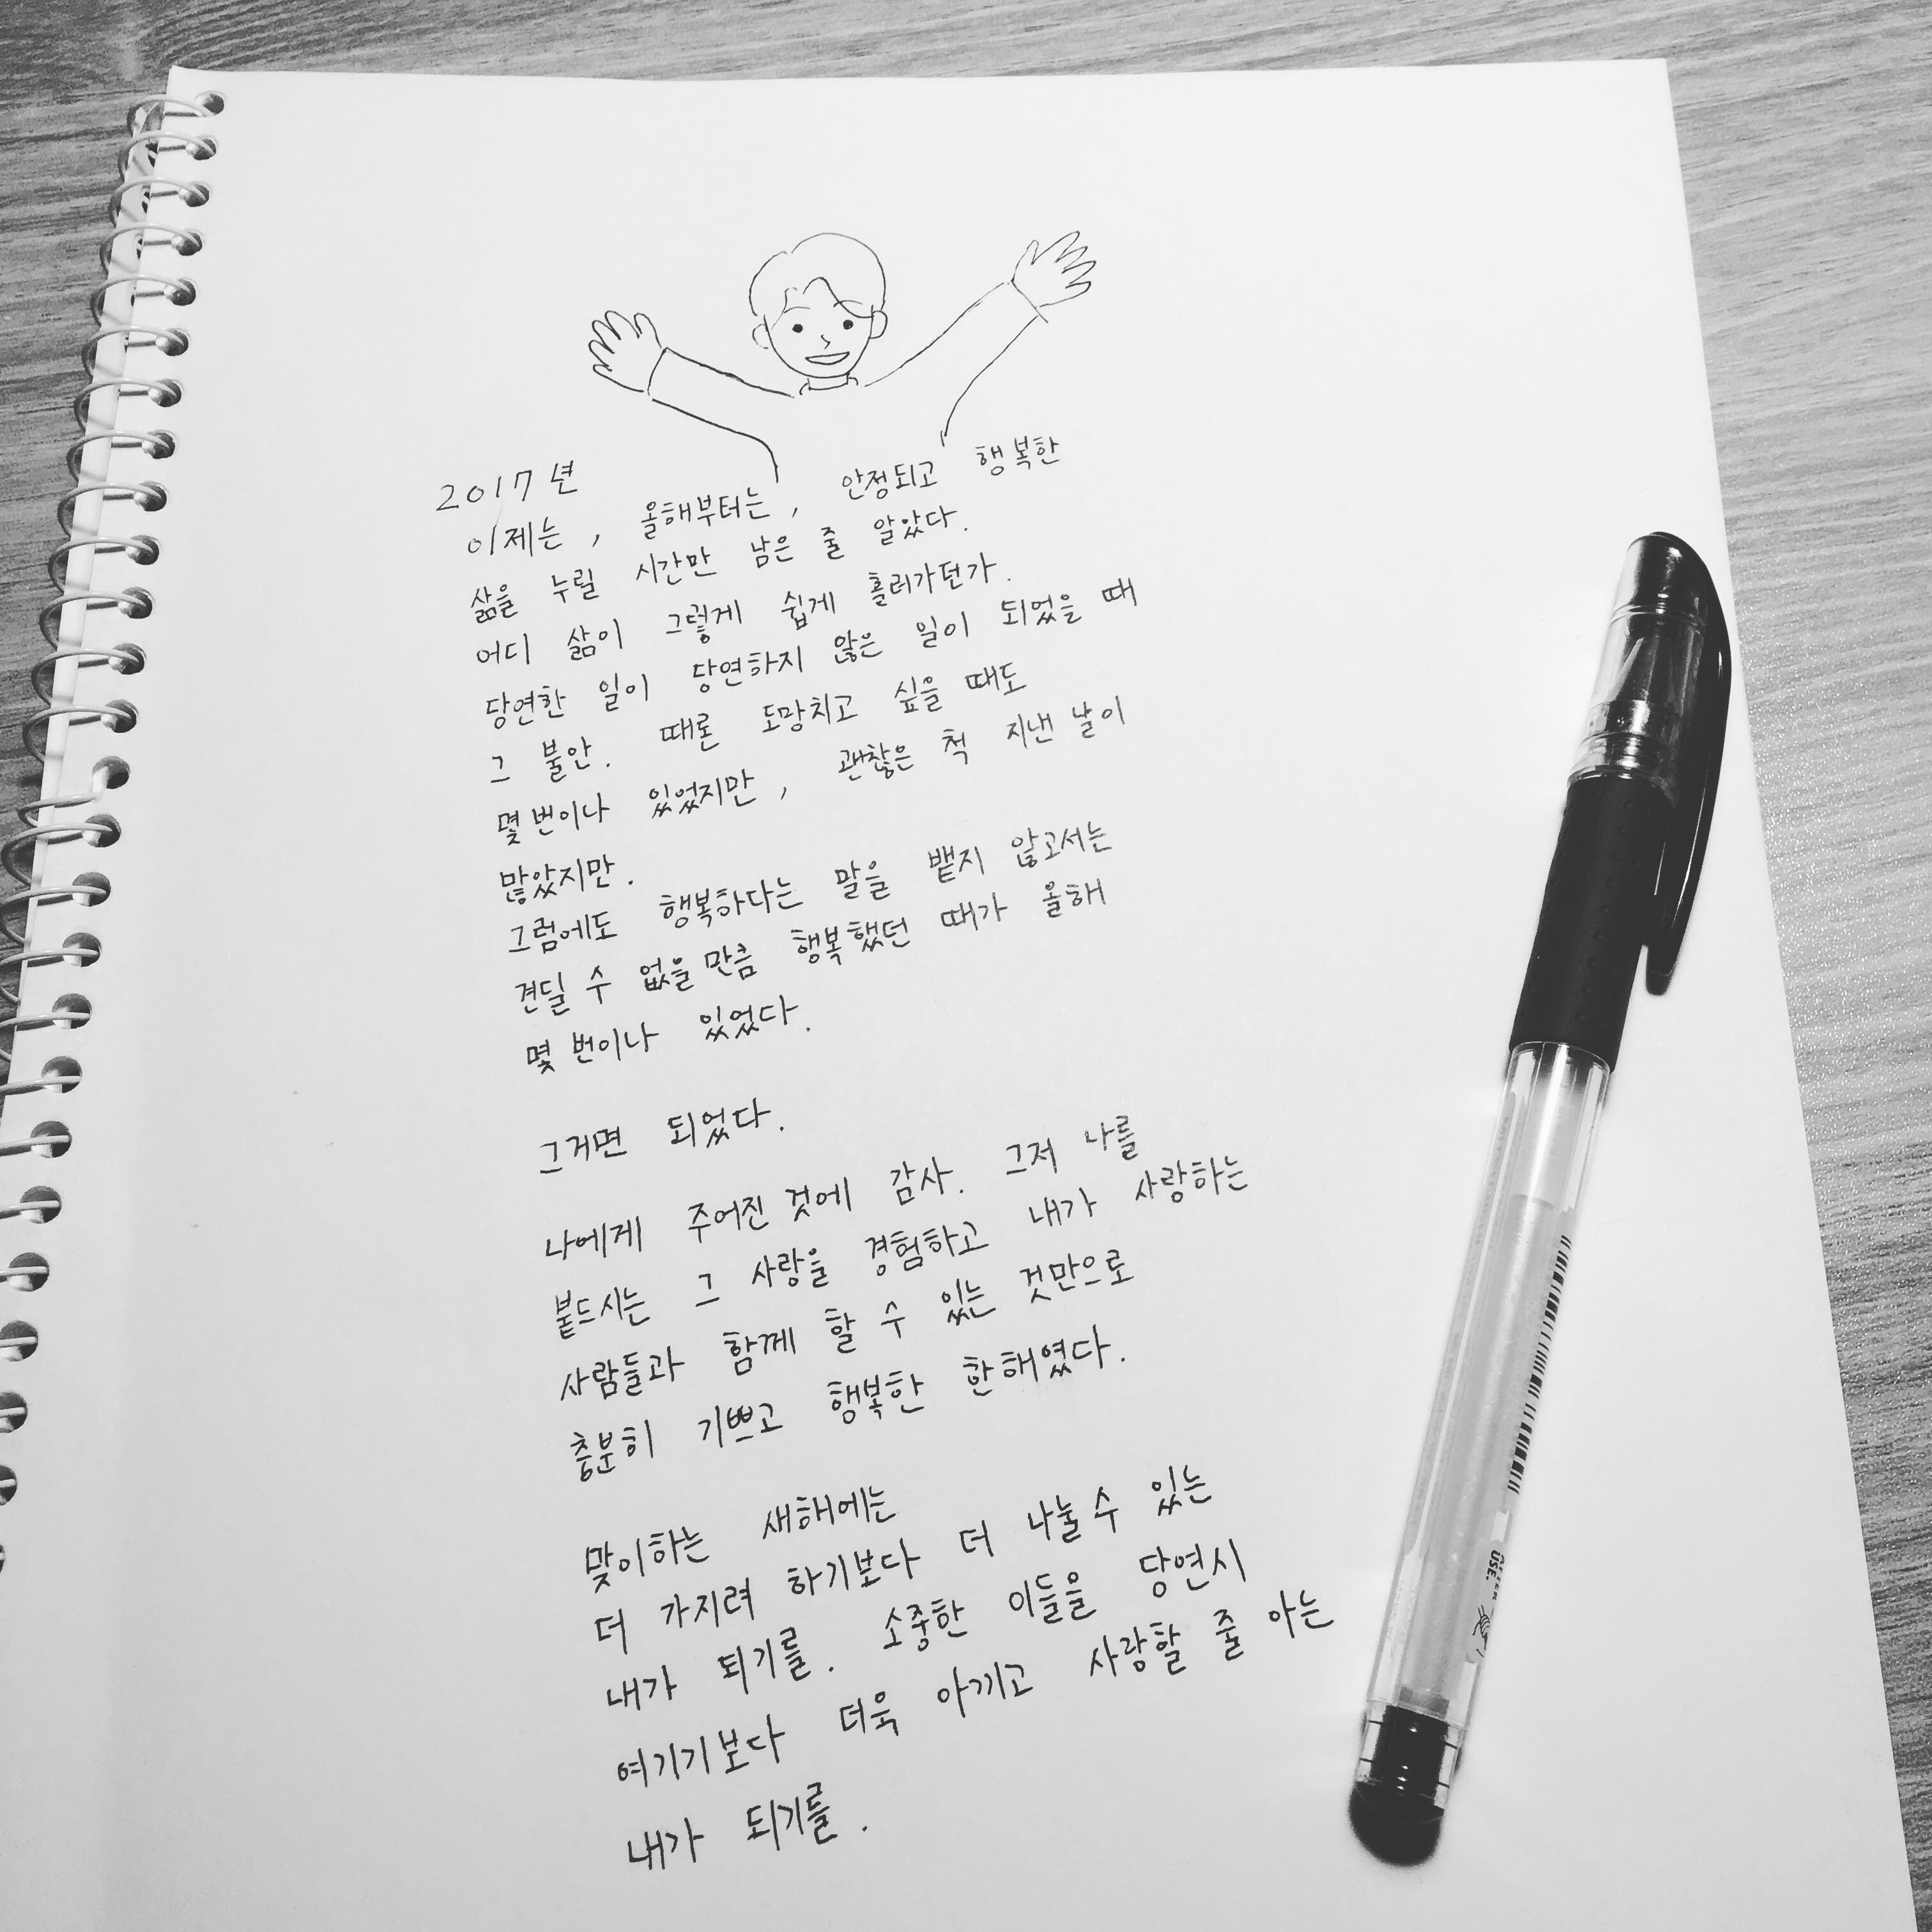 2017년
이제는, 올해부터는, 안정되고 행복한
삶을 누릴 시간만 남은 줄 알았다.
어디 삶이 그렇게 쉽게 흘러가던가.
당연한 일이 당연하지 않은 일이 되었을 때
그 불안. 때론 도망치고 싶을 때도
몇 번이나 있었지만, 괜찮은 척 지낸 날이
많았지만.
그럼에도 행복하다는 말을 뱉지 않고서는
견딜 수 없을만큼 행복했던 때가 올해
몇 번이나 있었다.
그거면 되었다.
나에게 주어진 것에 감사. 그저 나를
붙드시는 그 사랑을 경험하고 내가 사랑하는
사람들과 함께 할 수 있는 것만으로
충분히 기쁘고 행복한 한해였다.
맞이하는 새해에는
더 가지려 하기보다 더 나눌 수 있는
내가 되기를. 소중한 이들을 당연시
여기기보다 더욱 아끼고 사랑할 줄 아는
내가 되기를.
USE.